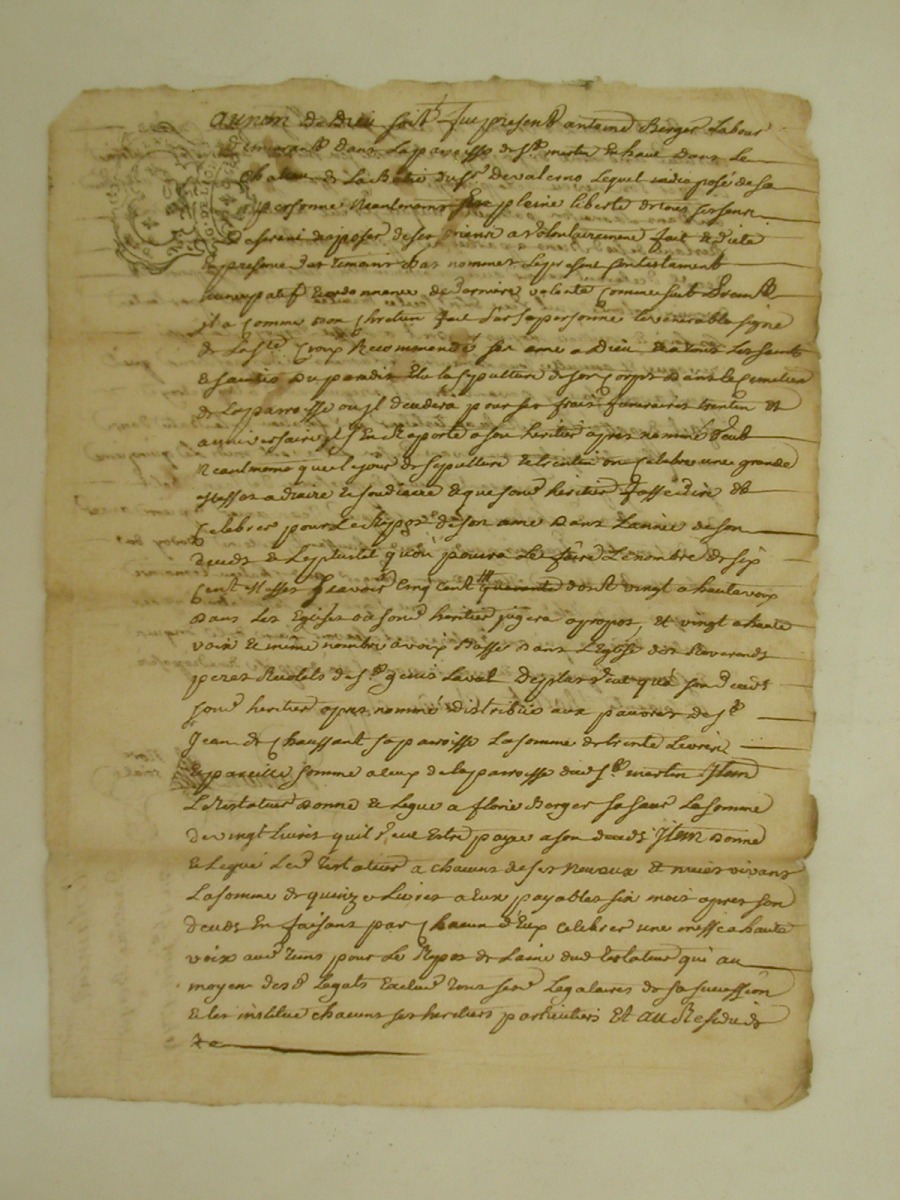 Au nom de Dieu soit fut present antoine Berger Labour
demeurant dans La parroisse de st martin En haut dans Le
chateau de La Batie du sr devalerno Lequel indisposé de sa
personne Neantmoins pleine liberté de tous ses sens
desirant disposer de ses biens a volontairement fait & dicté
En presence des temoins bas nommes Le present son testament
nuncupatif & ordonnance de derniere volonté comme suit
il a comme bon chretien fait sur sa personne le venerable signe
de La ste Croix Recommendé son ame a Dieu & a tous Les saints
& saintes du paradis Elu la sepulture de son corps dans le Cimetiere
de La parroisse ou il decedera pour ses frais funeraires trentin &
anniversaire il s'En Raporte a son heritier apres nommé veut
Neantmoins que le jour de sepulture & trentin on celebre une grande
Messe a diacre & soudiacre & que son heritier fasse dire &
Celebrer pour Le Repos de son ame dans L'année de son
deceds & Le plustot qu'on pourra Le faire Le nombre de six
Cent Messes scavoir Cinq Cent quarante dont vingt a haute voix
dans Les Eglises ou son heritier jugera apropos, Et vingt a haute
voix & même nombre a voix basse dans L'Eglise des Reverends
peres Recolets de st genis Laval De plus veut qu'a son deceds
son heritier apres nommé distribue aux pauvres de st
Jean de Chaussant sa parroisse La somme de trente Livres
& pareille somme a ceux de la parroisse dud st martin Item
Le testateur donne & Legue a florie Berger sa sœur La somme
de vingt Livres qu'il veut Estre payé a son deceds Item donne
& Legue Led testateur a chacuns de ses Neveux & nieces vivans
La somme de quinze Livres a Eux payables six mois apres son
deceds En faisant par chacun d'Eux celebrer une messe a haute
voix pour Le Repos de L'ame dud testateur qui au
moyen desd Legats Exclut tous ses Legataires de sa succession
& les institue chacuns ses heritiers particuliers Et au Residu de